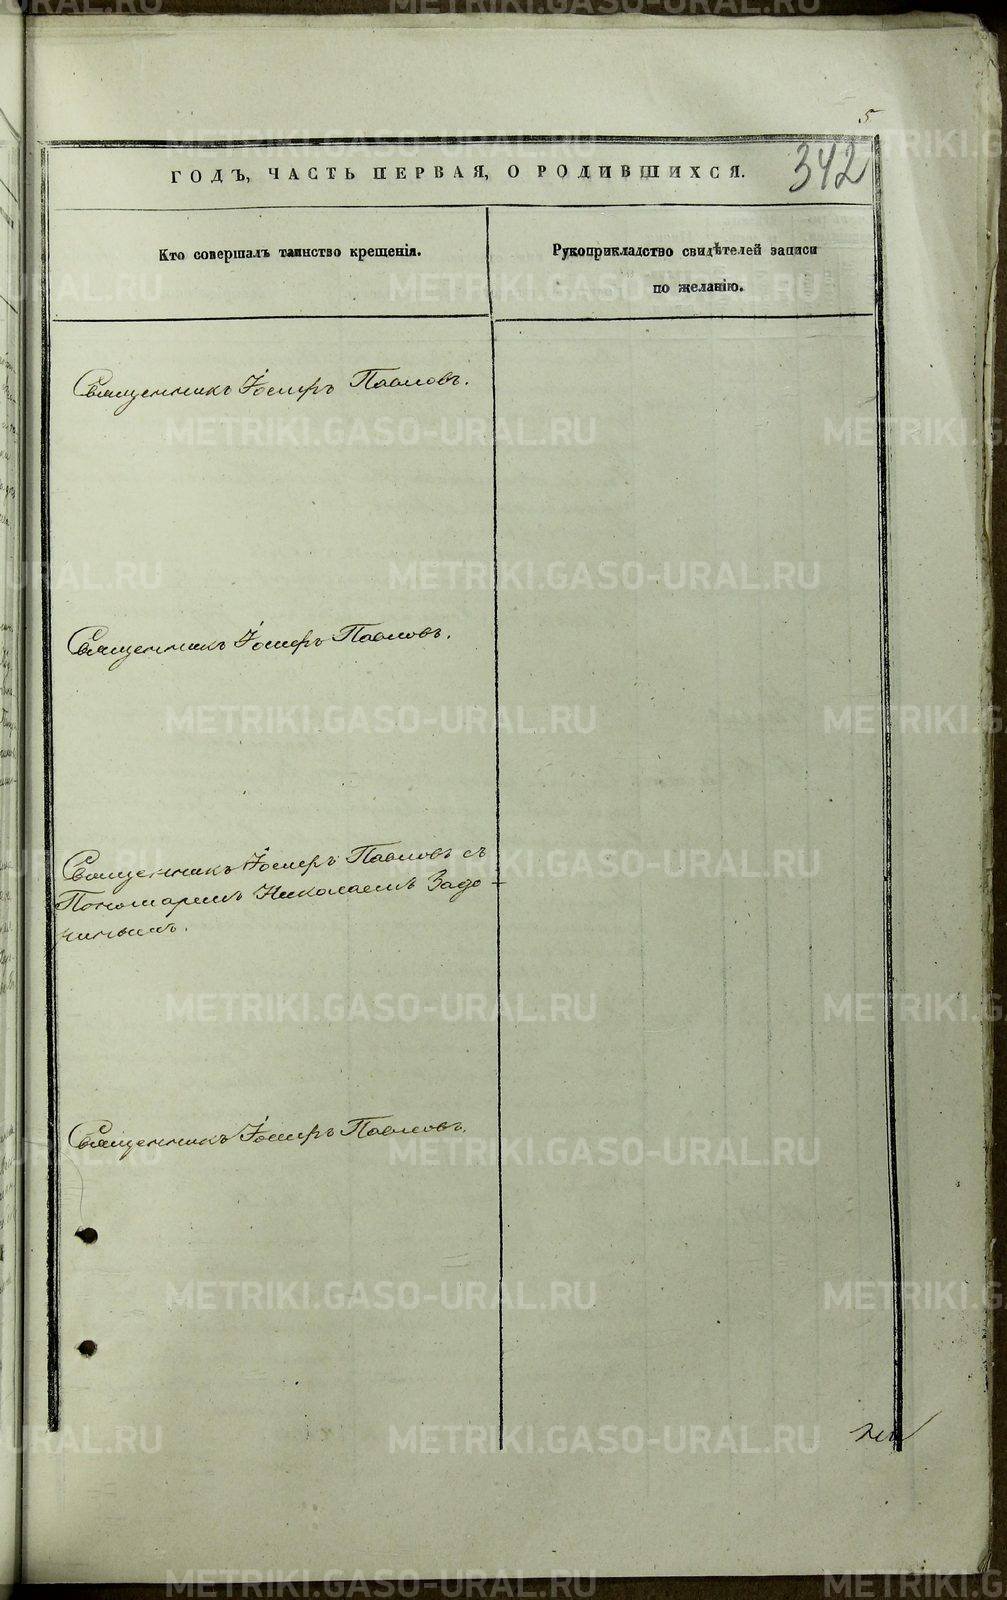 5
342
ГОДЪ, ЧАСТЬ ПЕРВАЯ, О РОДИВШИХСЯ.
Кто совершалъ таинство крещенія.
Рукоприкладство свидѣтелей записи
по желанію.
Священникъ Іосифъ Павловъ.
Священникъ Іосифъ Павловъ.
Священникъ Іосифъ Павловъ съ
Пономаремъ Николаемъ Задо-
Священникъ Іосифъ Павловъ.
METRIKI.GASO-URAL.RU